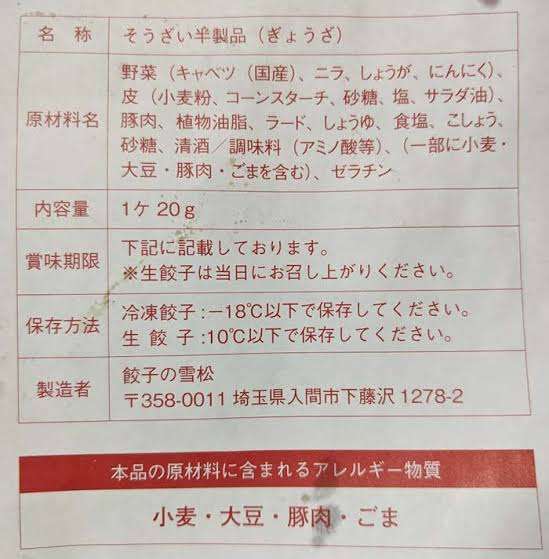 名称 そうざい半製品（ぎょうざ）
野菜（キャベツ（国産）、ニラ、しょうが、にんにく）、
皮（小麦粉、コーンスターチ、砂糖、塩、サラダ油）、
原材料名 豚肉、植物油脂、ラード、しょうゆ、食塩、こしょう、
砂糖、清酒／調味料（アミノ酸等）、（一部に小麦・
大豆・豚肉・ごまを含む）、ゼラチン
内容量 1ケ 20g
賞味期限 下記に記載しております。
※生餃子は当日にお召し上がりください。
保存方法 冷凍餃子：－18℃以下で保存してください。
生餃子：10℃以下で保存してください。
製造者 餃子の雪松
〒358-0011 埼玉県入間市下藤沢 1278-2
本品の原材料に含まれるアレルギー物質
小麦・大豆・豚肉・ごま